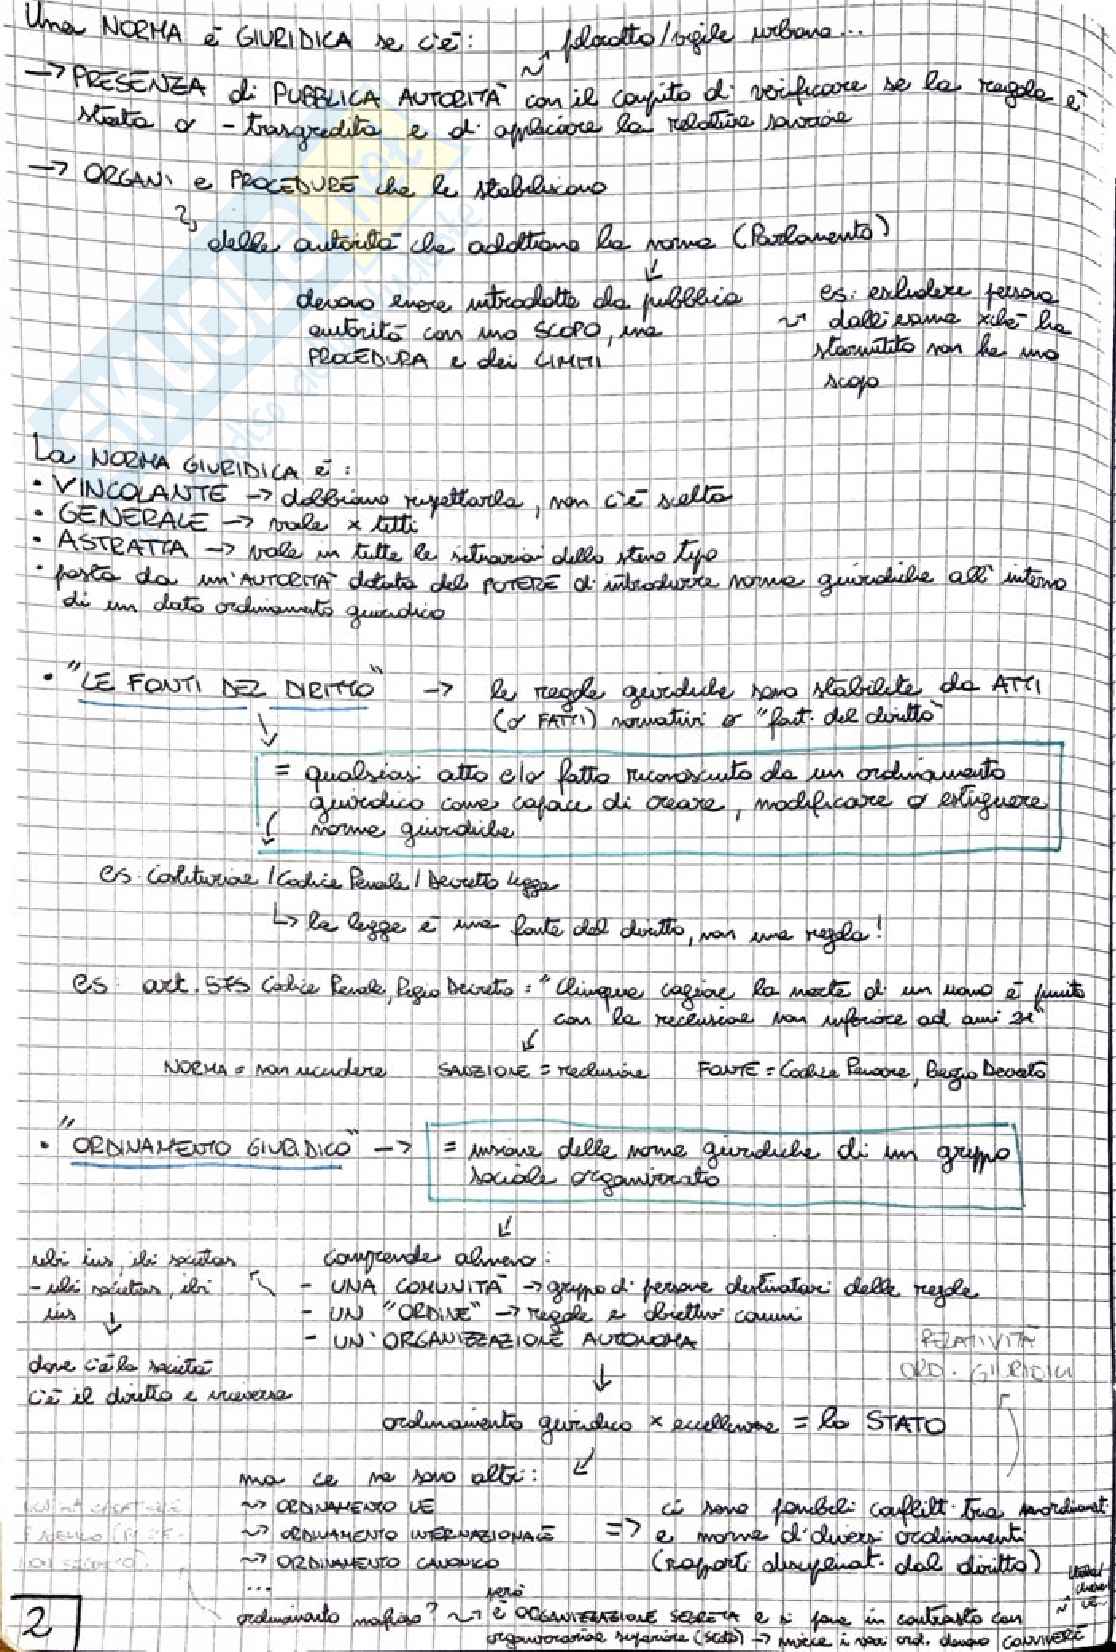 Una NORMA è GIURIDICA se c'è:
poliziotto/vigile urbano...
→ PRESENZA di PUBBLICA AUTORITÀ con il compito di verificare se la regola è
stata o - trasgredita e di applicare la relativa sanzione
→ ORGANI e PROCEDURE che le stabiliscono
delle autorità che adottano la norma (Parlamento)
devono essere introdotte da pubblica
autorità con uno SCOPO, una
PROCEDURA e dei LIMITI
es: escludere persona
dall'esame xkè ha
starnutito non ha uno
scopo
La NORMA GIURIDICA è:
• VINCOLANTE → dobbiamo rispettarla, non c'è scelta
• GENERALE → vale x tutti
• ASTRATTA → vale in tutte le situazioni dello stesso tipo
• posta da un'AUTORITÀ dotata del POTERE di introdurre norme giuridiche all'interno
di un dato ordinamento giuridico
• "LE FONTI DEL DIRITTO" → le regole giuridiche sono stabilite da ATTI
(o FATTI) normativi o "font. del diritto"
= qualsiasi atto e/o fatto riconosciuto da un ordinamento
giuridico come capace di creare, modificare o estinguere
norme giuridiche
es: Costituzione / Codice Penale / Decreto legge
↳ la legge è una fonte del diritto, non una regola!
es: art. 575 Codice Penale, Regio Decreto: "Chiunque cagiona la morte di un uomo è punito
con la reclusione non inferiore ad anni 21"
NORMA = non uccidere SANZIONE = reclusione FONTE = Codice Penale, Regio Decreto
• "ORDINAMENTO GIURIDICO" → = insieme delle norme giuridiche di un gruppo
sociale organizzato
comprende almeno:
- UNA COMUNITÀ → gruppo di persone destinatari delle regole
- UN "ORDINE" → regole e obiettivi comuni
- UN'ORGANIZZAZIONE AUTONOMA
ubi ius, ibi societas
- ubi societas, ibi
ius
dove c'è la società
c'è il diritto e viceversa
RELATIVITÀ
ORD. GIURIDICI
ordinamento giuridico x eccellenza = lo STATO
ma ce ne sono altri:
ORDINAMENTO UE
ORDINAMENTO INTERNAZIONALE
ORDINAMENTO CANONICO
...
=> ci sono possibili conflitt. tra
e norme di diversi ordinamenti
(rapporti disciplinat. dal diritto)
ordinamento mafioso? però è ORGANIZZAZIONE SEGRETA e si pone in contrasto con
organizzazione superiore (stato) → invece i vari ord. devono CONVIVERE
2